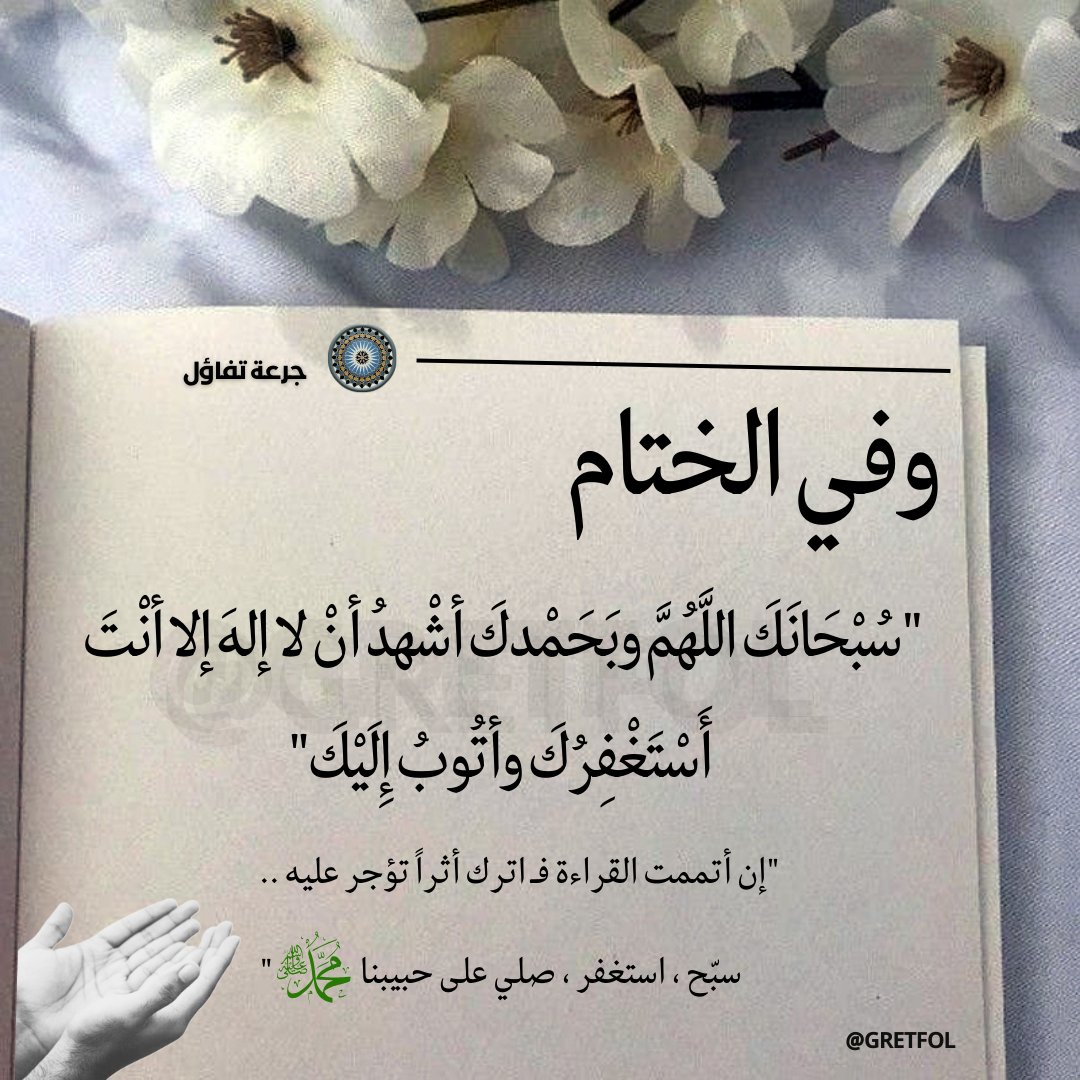 جرعة تفاؤل
وفي الختام
"سُبْحَانَكَ اللَّهُمَّ وبَحَمْدكَ أشْهدُ أنْ لا إلهَ إلا أنْتَ
أَسْتَغْفِرُكَ وأتُوبُ إِلَيْكَ"
"إن أتممت القراءة فـاترك أثراً تؤجر عليه ..
سبّح ، استغفر ، صلي على حبيبنا محمد ﷺ "
@GRETFOL
@GRETFOL